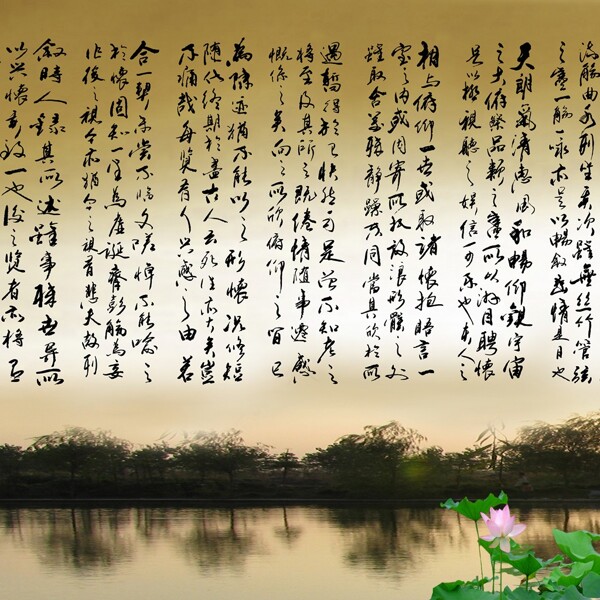 流觴曲水列坐其次雖無絲竹管弦
之盛一觴一詠亦足以暢敘幽情是日也
天朗氣清惠風和暢仰觀宇宙
之大俯察品類之盛所以游目騁懷
足以極視聽之娛信可樂也夫人之
相與俯仰一世或取諸懷抱晤言一
室之內或因寄所託放浪形骸之外
雖取舍萬殊靜躁不同當其欣於所
遇暫得於己快然自足不知老之
將至及其所之既倦情隨事遷感
慨係之矣向之所欣俯仰之間已
為陳迹猶不能不以之興懷況修短
隨化終期於盡古人云死生亦大矣豈
不痛哉每覽昔人興感之由若
合一契未嘗不臨文嗟悼不能喻之
於懷固知一死生為虛誕齊彭殤為妄
作後之視今亦猶今之視昔悲夫故列
敘時人錄其所述雖事殊世異所
以興懷其致一也後之覽者亦將有